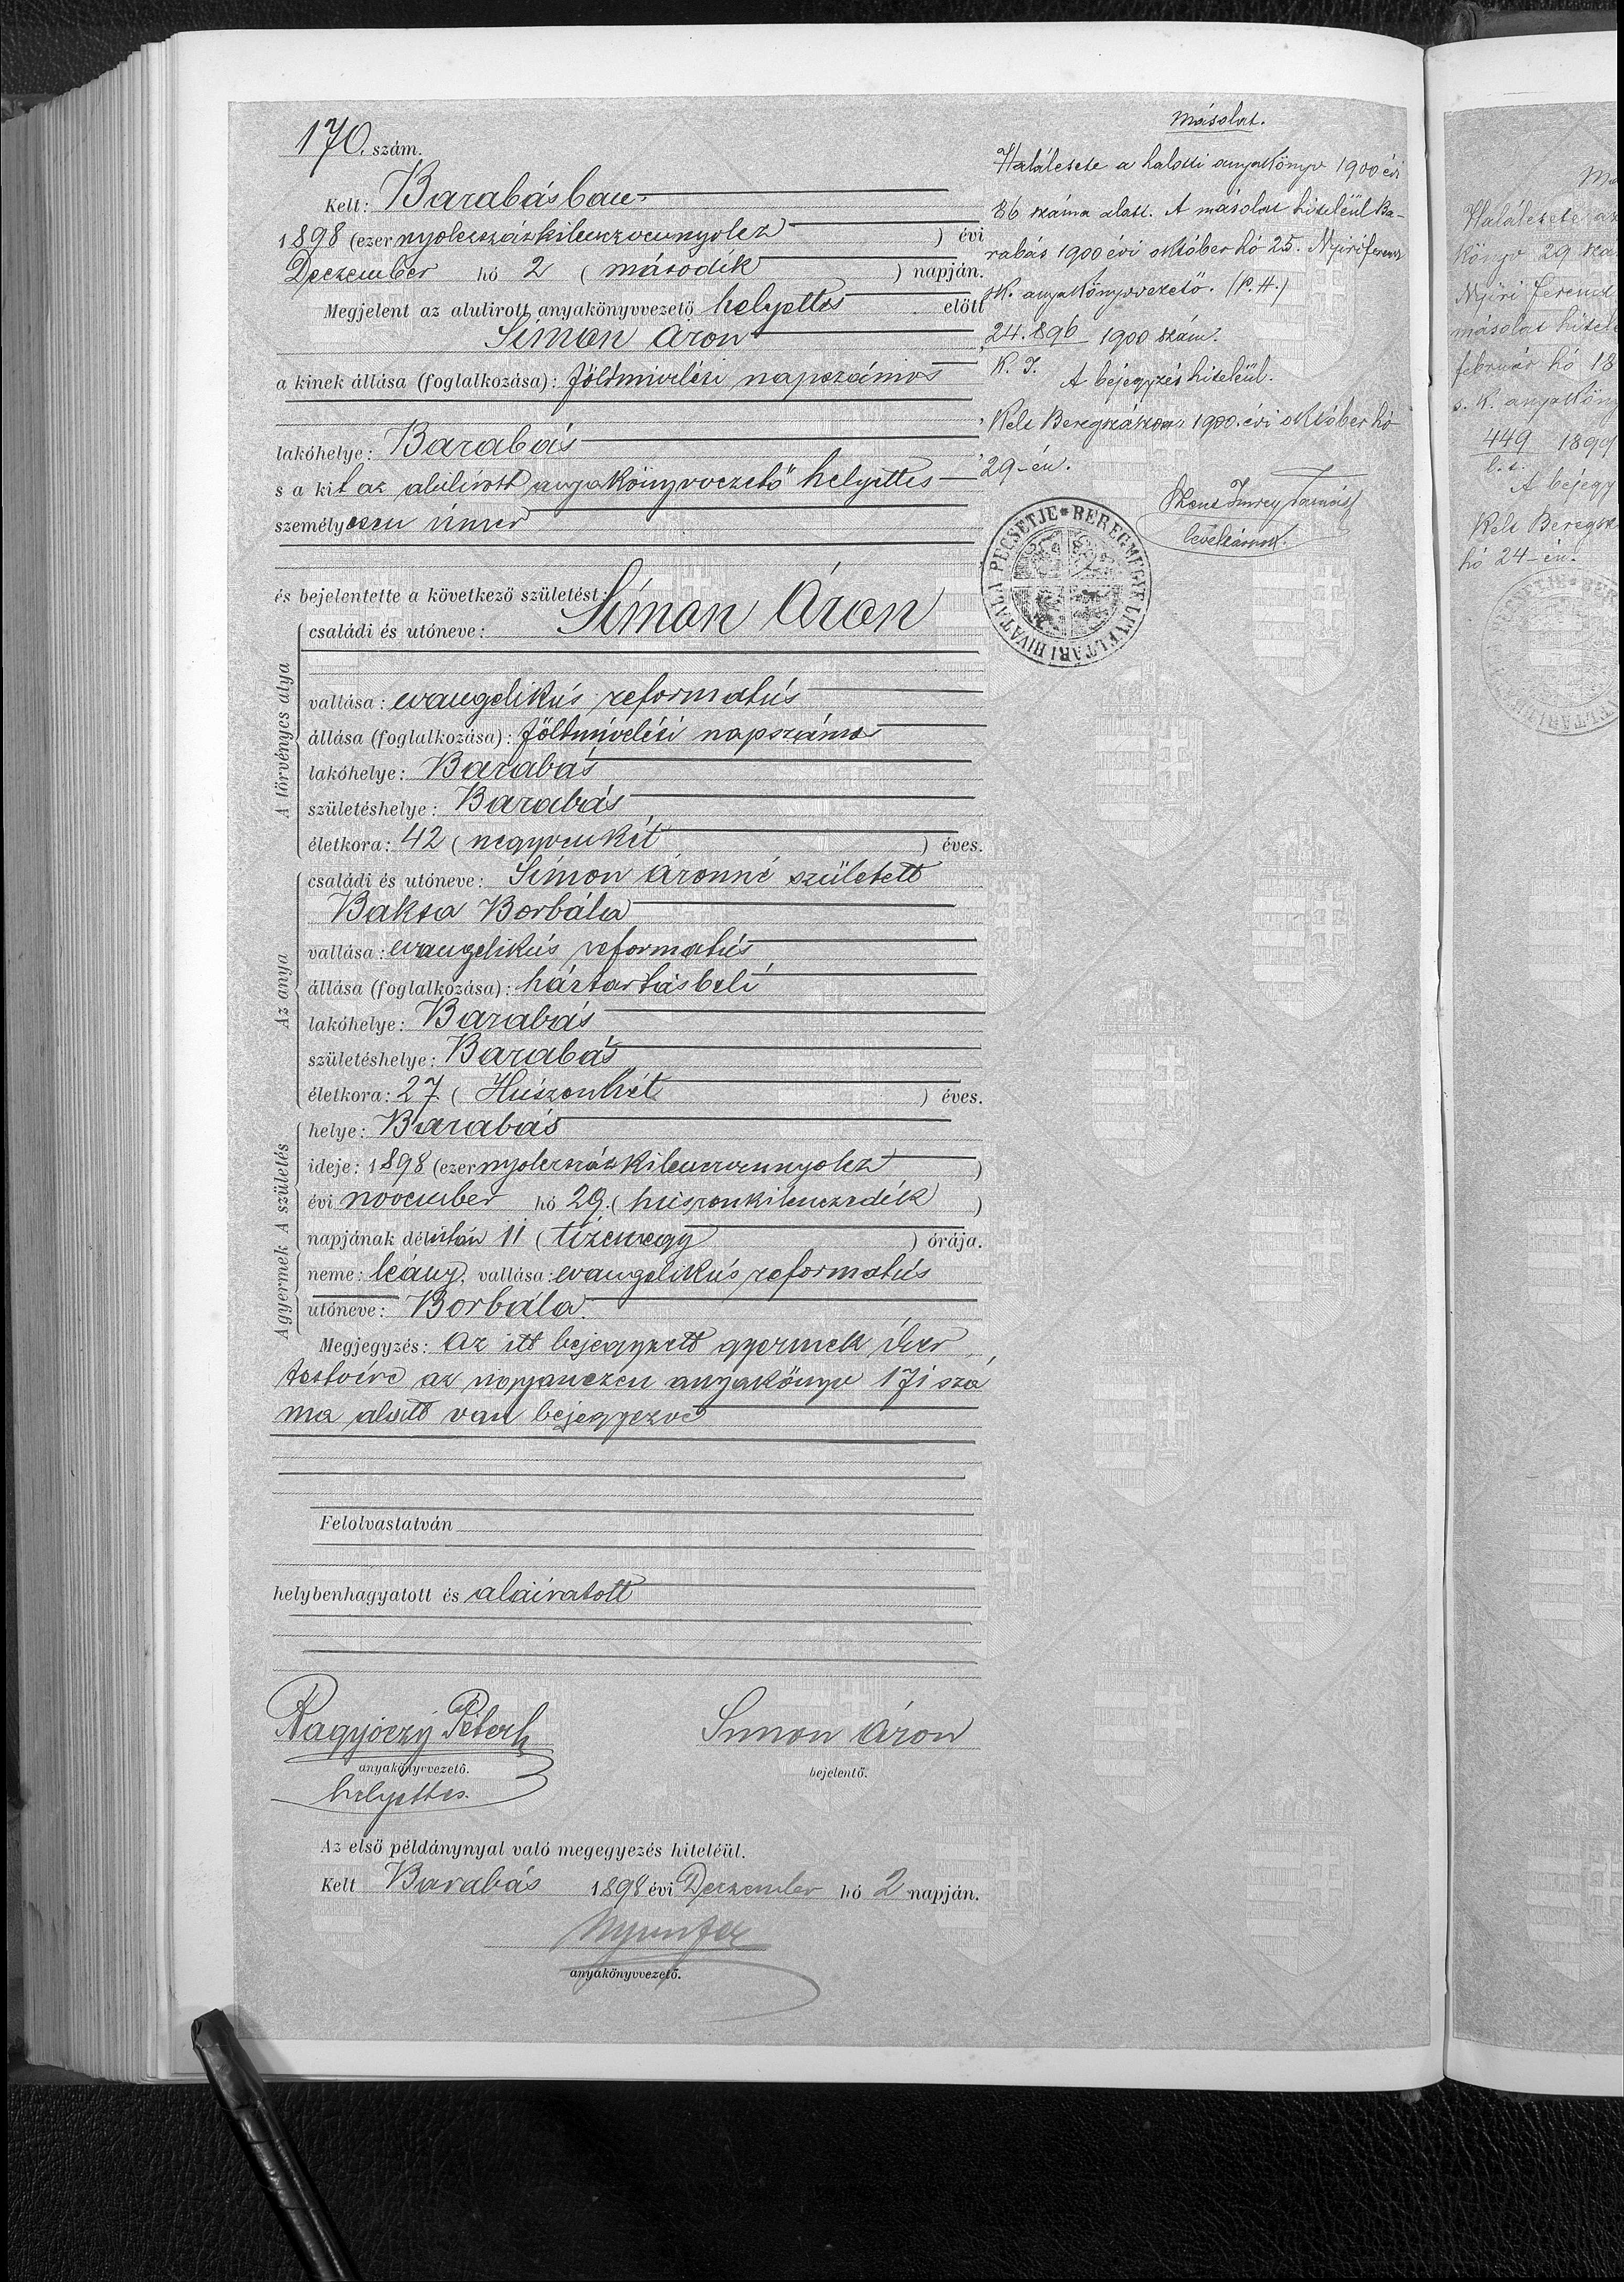 170. szám.
Kelt: Barabásban
1898 (ezernyolczszázkilenczvennyolcz) évi
Deczember hó 2 (második) napján.
Megjelent az alulirott anyakönyvvezető helyettes előtt
Simon Áron
a kinek állása (foglalkozása): földmivelési napszámos
lakóhelye: Barabás
s a kit az alulírott anyakönyvvezető helyettes
személyesen ismer
és bejelentette a következő születést:
A törvényes atya
családi és utóneve: Simon Áron
vallása: evangelikús reformatús
állása (foglalkozása): földmivelési napszámos
lakóhelye: Barabás
születéshelye: Barabás
életkora: 42 (negyvenkét) éves.
Az anya
családi és utóneve: Simon Áronné született
Baksa Borbála
vallása: evangelikús reformatús
állása (foglalkozása): háztartásbeli
lakóhelye: Barabás
születéshelye: Barabás
életkora: 27 (Húszonhét) éves.
A születés
helye: Barabás
ideje: 1898 (ezernyolczszázkilenczvennyolcz)
évi november hó 29. (húszonkilenczedik)
napjának délután 11 (tizenegy) órája.
A gyermek
neme: leány, vallása: evangelikús reformatús
utóneve: Borbála
Megjegyzés: Az itt bejegyzett gyermek iker
testvére az ugyanezen anyakönyv 171 szá
ma alatt van bejegyezve
Felolvastatván
helybenhagyatott és aláiratott
Péter
anyakönyvvezető.
helyettes.
Simon Áron
bejelentő.
Az első példánynyal való megegyezés hiteléül.
Kelt Barabás 1898 évi Deczember hó 2 napján.
anyakönyvvezető.
Másolat.
Halálesete a halotti anyakönyv 1900 évi
86 száma alatt. A másolat hiteléül Ba-
rabás 1900 évi október hó 25. Nyiri ferencz
sk. anyakönyvvezető. (P. H.)
24.896 1900 szám.
K. I.
A bejegyzés hiteléül.
Kelt Beregszászon 1900. évi október hó
29-én.
levéltárnok.
BEREGMEGYE LEVÉLTÁRI HIVATALI PECSÉTJE
Halálesete az
könyv 29 szá
Nyiri ferencz
másolat hitelé
február hó 18
s. k. anyaköny
449 1899
l. t.
A bejegy
Kelt Beregsz
hó 24-én.